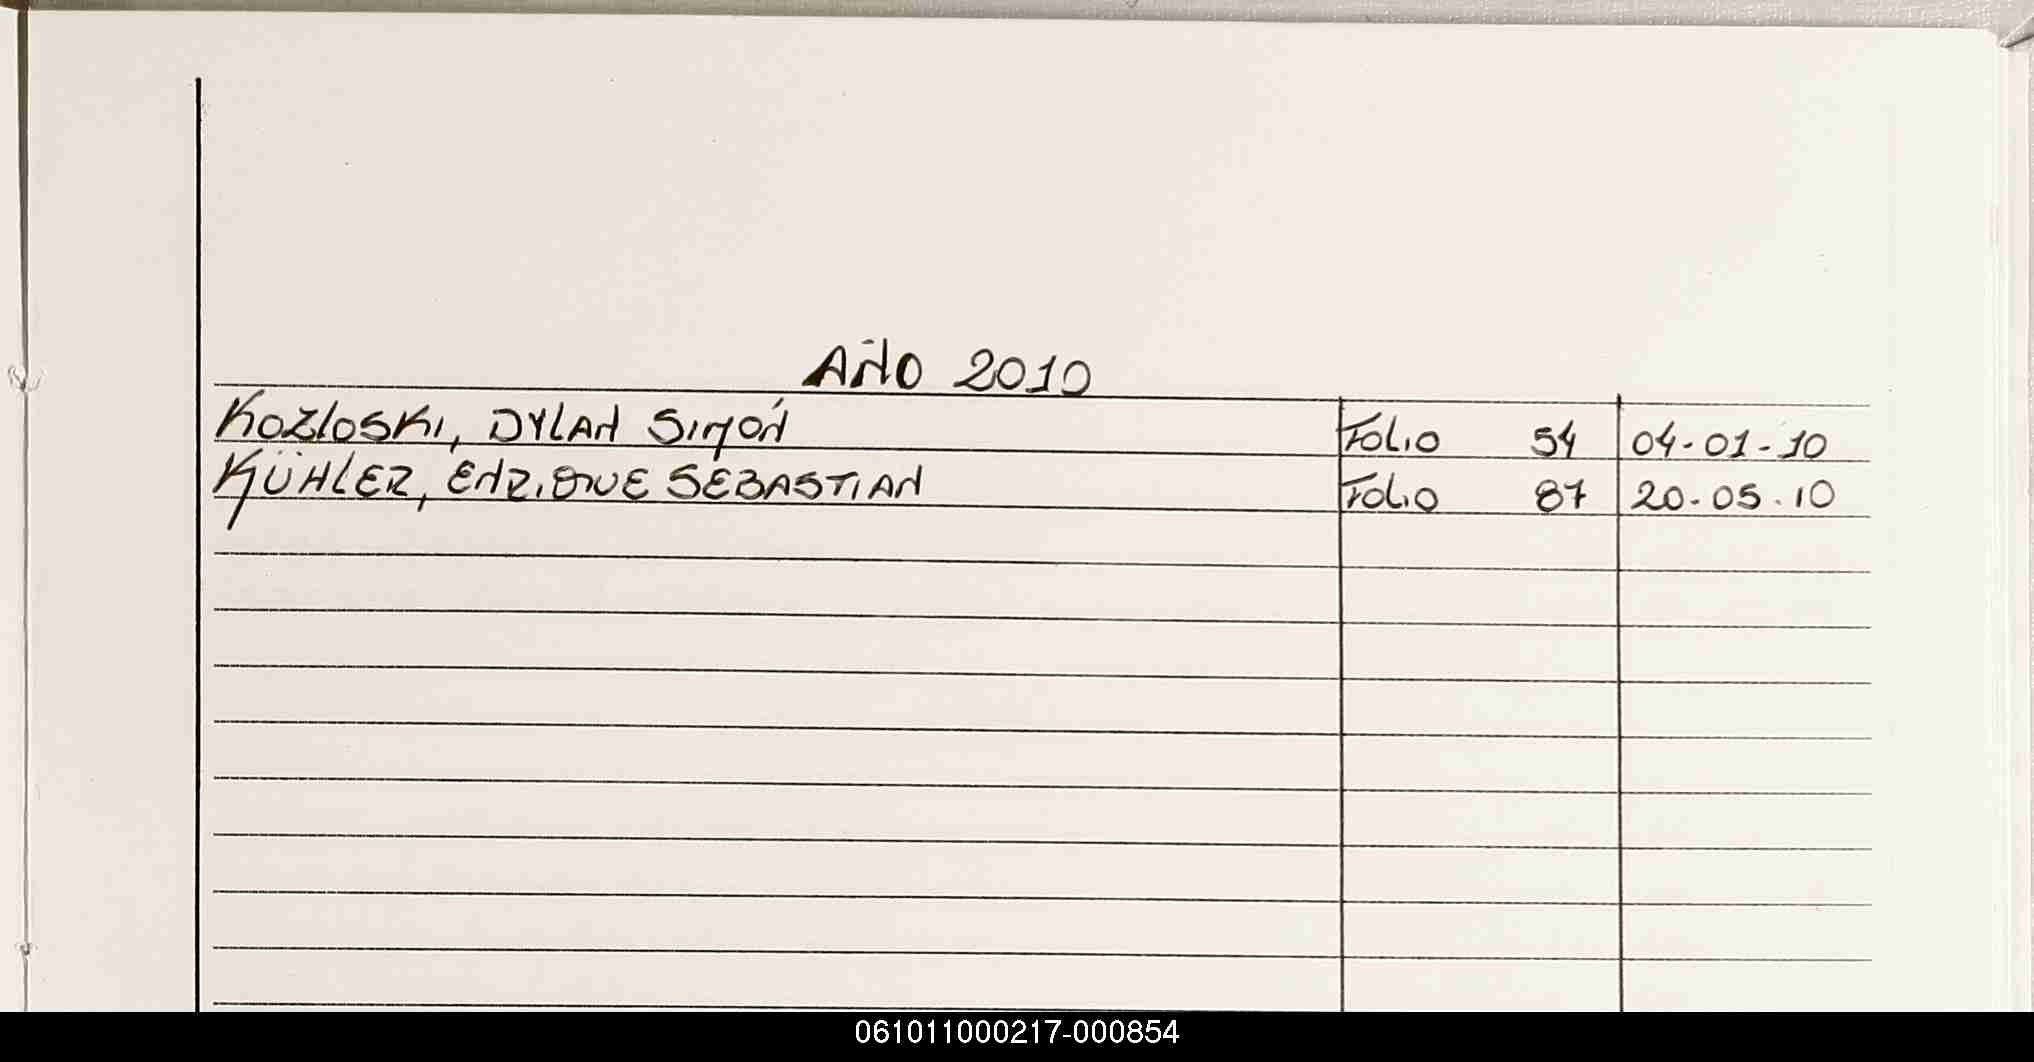 AÑO 2010
KOZLOSKI, DYLAN SIMÓN Folio 54 04-01-10
KÜHLER, ENRIQUE SEBASTIAN Folio 87 20-05-10
061011000217-000854